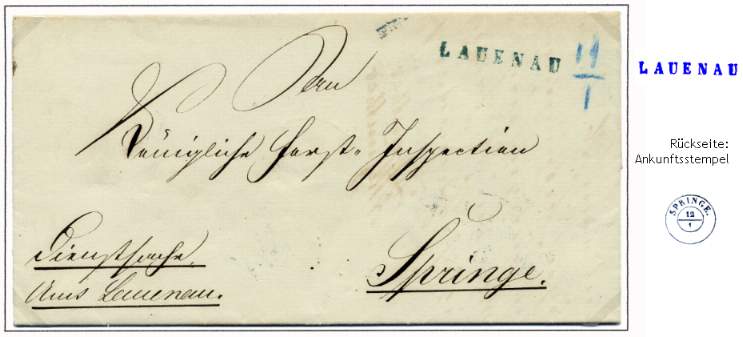 LAUENAU
11
1
Königliche Forst-Inspection
Dienstsache
Amt Lauenau.
Springe.
LAUENAU
Rückseite:
Ankunftsstempel
SPRINGE.
12
1